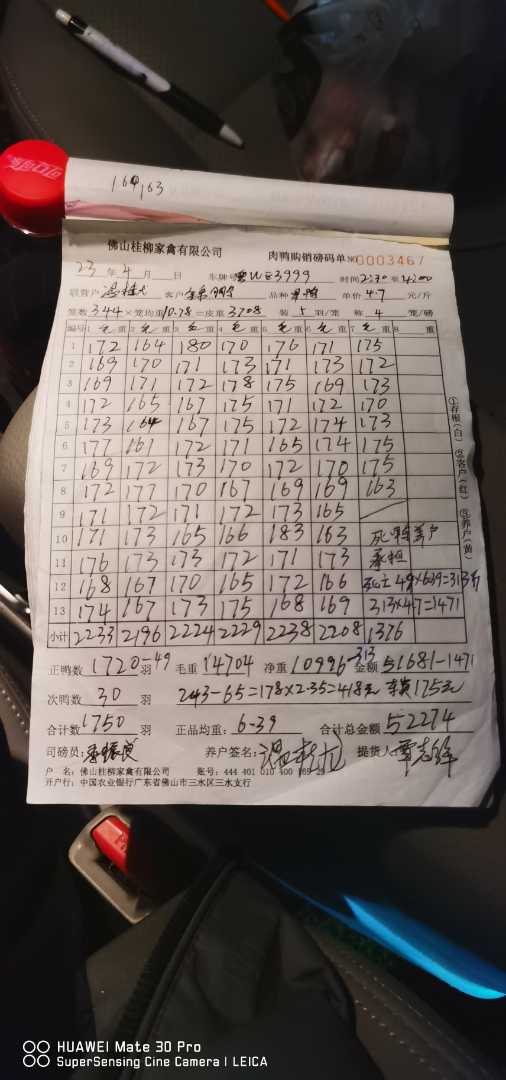 可口可
164,163
佛山桂柳家禽有限公司 肉鸭购销磅码单 №0003467
23年4月 日 车牌号 3999 时间2:30至4:00
联营户 客户 品种 单价4.7元/斤
笼数344×笼均重10.78=皮重3708 装5羽/笼 称4笼/磅
编号 1毛重 2毛重 3毛重 4毛重 5毛重 6毛重 7毛重 8 重
1 172 164 180 170 176 171 175
2 169 170 171 173 171 173 172
3 169 171 172 178 175 169 173
4 172 165 167 175 171 172 170
5 173 164 167 175 172 174 173
6 177 161 172 171 165 174 175
7 169 172 173 170 172 170 175
8 172 177 170 167 169 169 163
9 171 172 171 172 173 165
10 171 173 165 166 183 163 死鸭养户
11 176 173 173 172 171 173 承担
12 168 167 170 165 172 166 死亡49×6.39=313斤
13 174 167 173 175 168 169 313×4.7=1471
小计 2233 2196 2224 2229 2238 2208 1376
①存根(白) ②客户(红) ③养户(黄)
正鸭数1720-49羽 毛重14704 净重10996-313 金额51681-1471
次鸭数30羽 243-65=178×2.35=418元 175元
合计数1750羽 正品均重:6.39 合计总金额52274
司磅员: 养户签名: 提货人:
户 名:佛山桂柳家禽有限公司 账号:444 401 010 400 169 29
开户行:中国农业银行广东省佛山市三水区三水支行
HUAWEI Mate 30 Pro
SuperSensing Cine Camera | LEICA